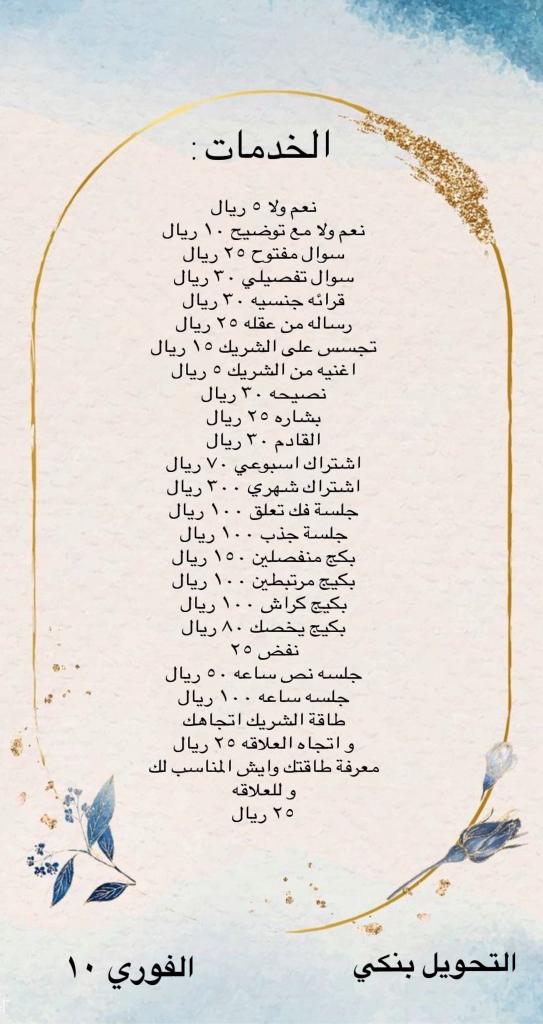 الخدمات :
نعم ولا ٥ ريال
نعم ولا مع توضيح ١٠ ريال
سوال مفتوح ٢٥ ريال
سوال تفصيلي ٣٠ ريال
قرائه جنسيه ٣٠ ريال
رساله من عقله ٢٥ ريال
تجسس على الشريك ١٥ ريال
اغنيه من الشريك ٥ ريال
نصيحه ٣٠ ريال
بشاره ٢٥ ريال
القادم ٣٠ ريال
اشتراك اسبوعي ٧٠ ريال
اشتراك شهري ٣٠٠ ريال
جلسة فك تعلق ١٠٠ ريال
جلسة جذب ١٠٠ ريال
بكج منفصلين ١٥٠ ريال
بكيج مرتبطين ١٠٠ ريال
بكيج كراش ١٠٠ ريال
بكيج يخصك ٨٠ ريال
نفض ٢٥
جلسه نص ساعه ٥٠ ريال
جلسه ساعه ١٠٠ ريال
طاقة الشريك اتجاهك
و اتجاه العلاقه ٢٥ ريال
معرفة طاقتك وايش المناسب لك
و للعلاقه
٢٥ ريال
التحويل بنكي
الفوري ١٠